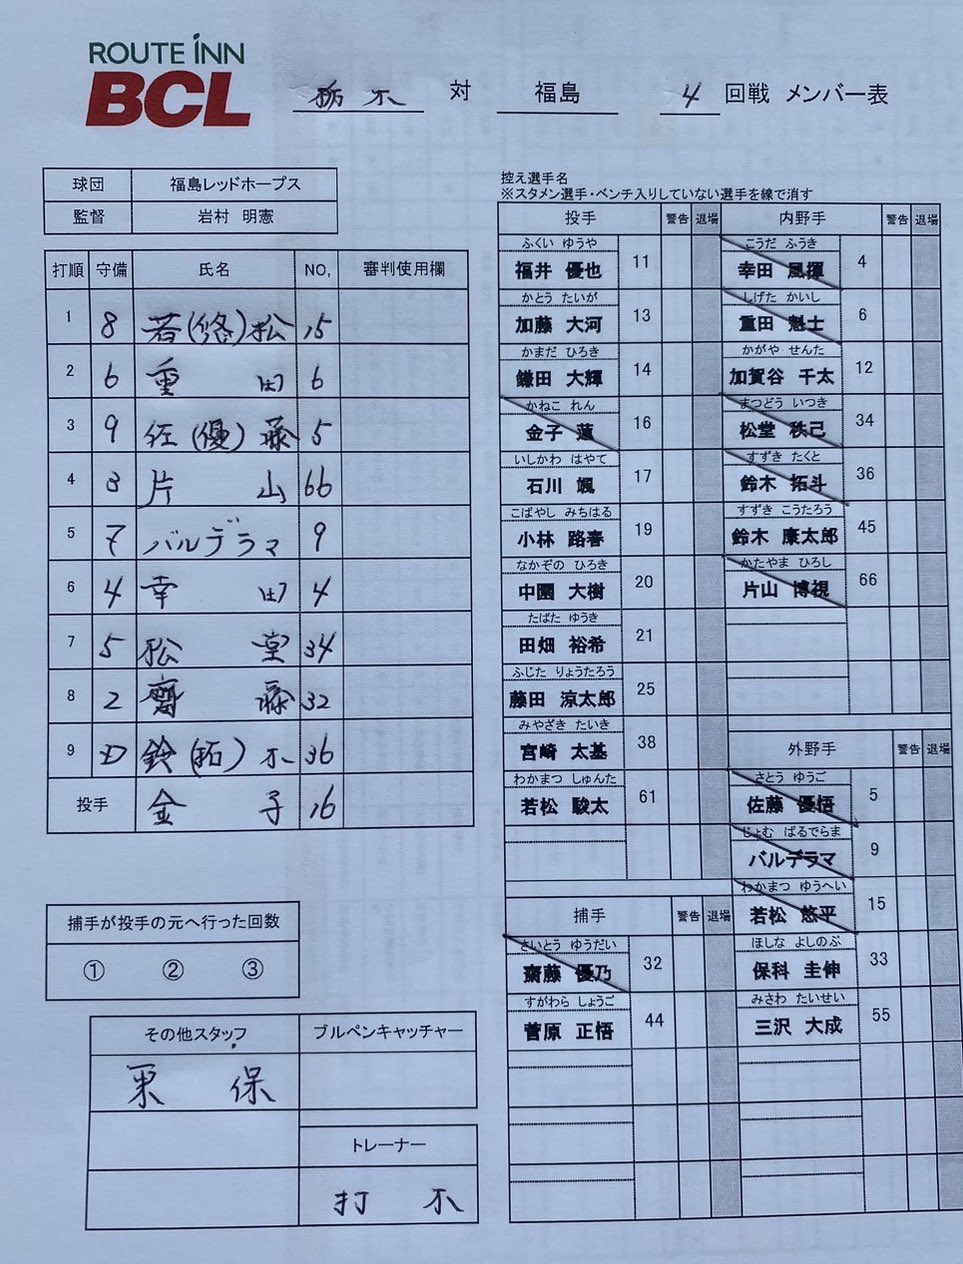 ROUTE INN
BCL
栃木 対 福島 4 回戦 メンバー表
球団 福島レッドホープス
監督 岩村 明憲
打順 守備 氏名 NO, 審判使用欄
1 8 若(悠)松 15
2 6 重田 6
3 9 佐(優)藤 5
4 3 片山 66
5 7 バルデラマ 9
6 4 幸田 4
7 5 松堂 34
8 2 齋藤 32
9 D 鈴(拓)木 36
投手 金子 16
捕手が投手の元へ行った回数
① ② ③
その他スタッフ ブルペンキャッチャー
保
トレーナー
打木
控え選手名
※スタメン選手・ベンチ入りしていない選手を線で消す
投手 警告 退場
ふくい ゆうや
福井 優也 11
かとう たいが
加藤 大河 13
かまだ ひろき
鎌田 大輝 14
かねこ れん
金子 蓮 16
いしかわ はやて
石川 颯 17
こばやし みちはる
小林 路春 19
なかぞの ひろき
中園 大樹 20
たばた ゆうき
田畑 裕希 21
ふじた りょうたろう
藤田 涼太郎 25
みやざき たいき
宮崎 太基 38
わかまつ しゅんた
若松 駿太 61
捕手 警告 退場
さいとう ゆうだい
齋藤 優乃 32
すがわら しょうご
菅原 正悟 44
内野手 警告 退場
こうだ ふうき
幸田 風揮 4
しげた かいし
重田 魁士 6
かがや せんた
加賀谷 千太 12
まつどう いつき
松堂 秩己 34
すずき たくと
鈴木 拓斗 36
すずき こうたろう
鈴木 康太郎 45
かたやま ひろし
片山 博視 66
外野手 警告 退場
さとう ゆうご
佐藤 優悟 5
じょむ ばるでらま
バルデラマ 9
わかまつ ゆうへい
若松 悠平 15
ほしな よしのぶ
保科 圭伸 33
みさわ たいせい
三沢 大成 55